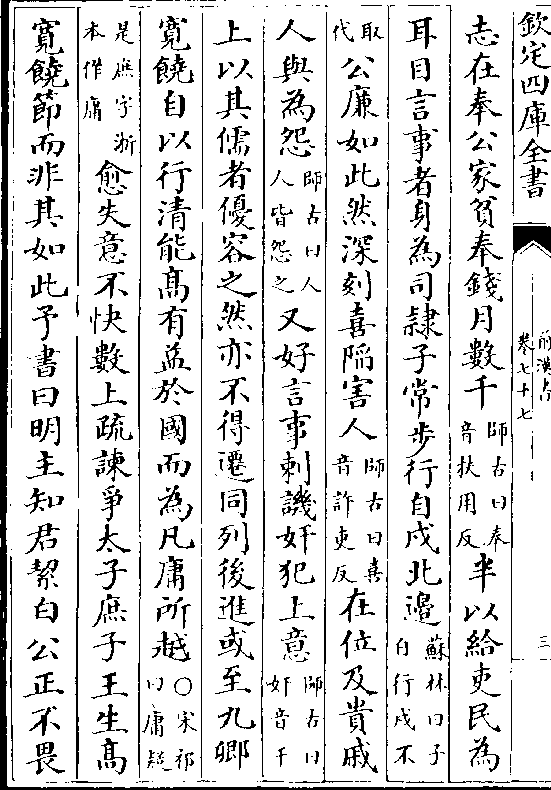 欽定四庫全書
前漢書
卷七十七
三
志在奉公家貧奉錢月數千師古曰奉音扶用反半以給吏民為
耳目言事者身為司隸子常步行自戍北邊蘇林曰子自行戍不
取代公廉如此然深刻喜陷害人師古曰喜音許吏反在位及貴戚
人與為怨師古曰人人皆怨之又好言事刺譏奸犯上意師古曰奸音干
上以其儒者優容之然亦不得遷同列後進或至九卿
寬饒自以行清能髙有益於國而為凡庸所越○宋祁曰庸疑
是庶字浙本作庸愈失意不快數上疏諫爭太子庶子王生髙
寬饒節而非其如此予書曰明主知君絜白公正不畏